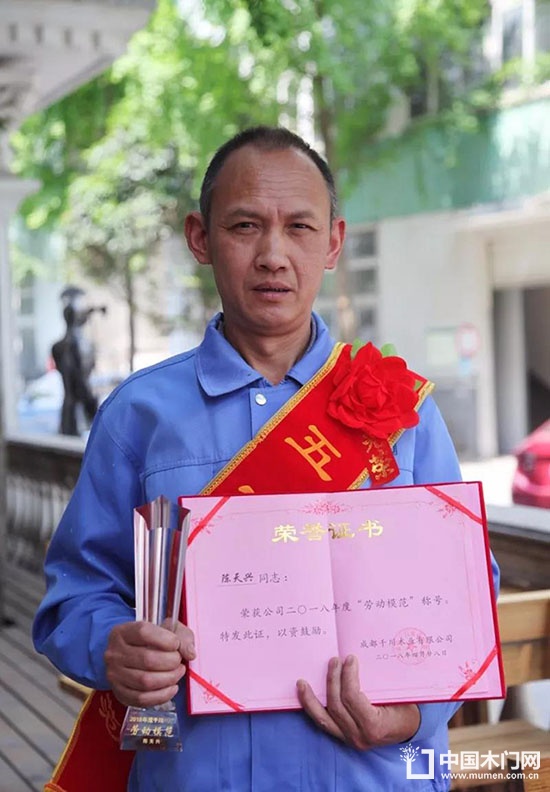 五
荣誉证书
陈天兴 同志：
荣获公司二〇一八年度“劳动模范”称号，
特发此证，以资鼓励。
成都千川木业有限公司
二〇一八年四月廿八日
2018年度千川
劳动模范
陈天兴
中国木门网
www.mumen.com.cn